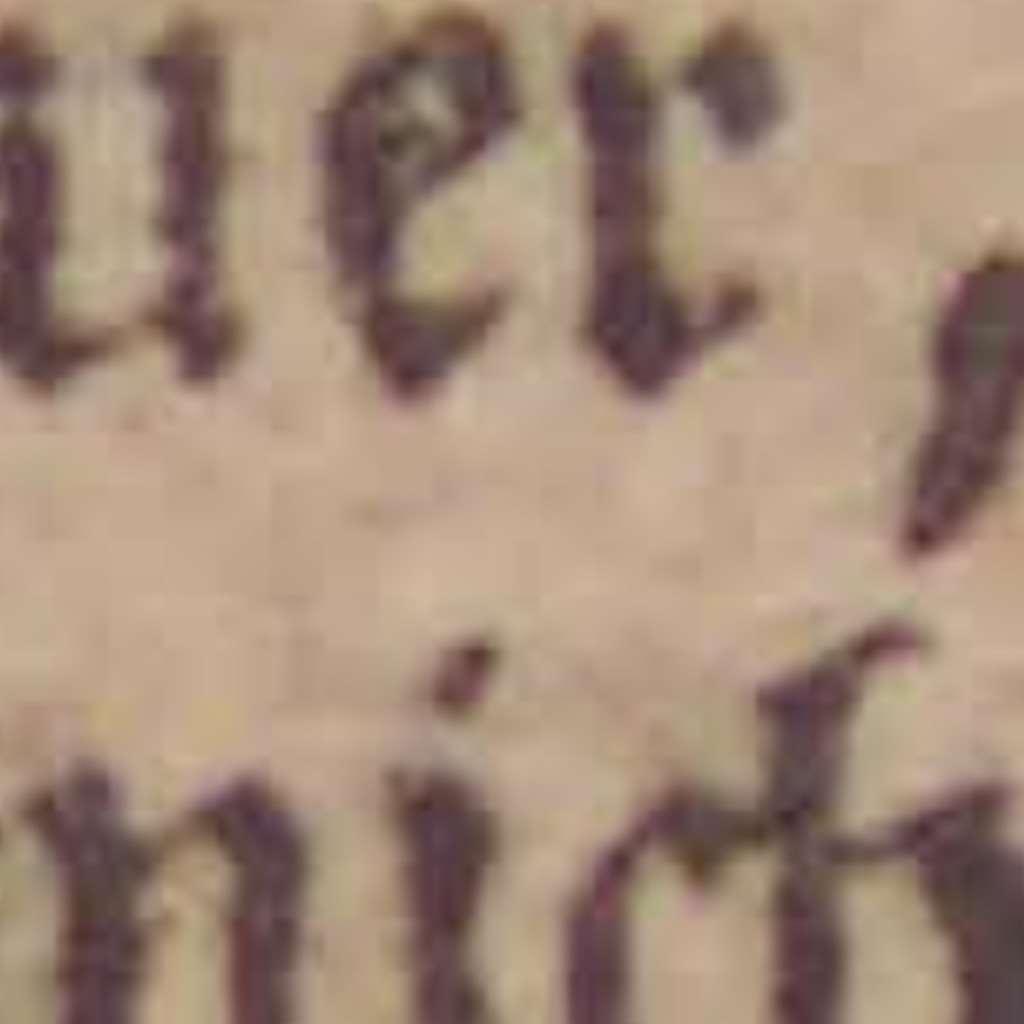 uer
nich